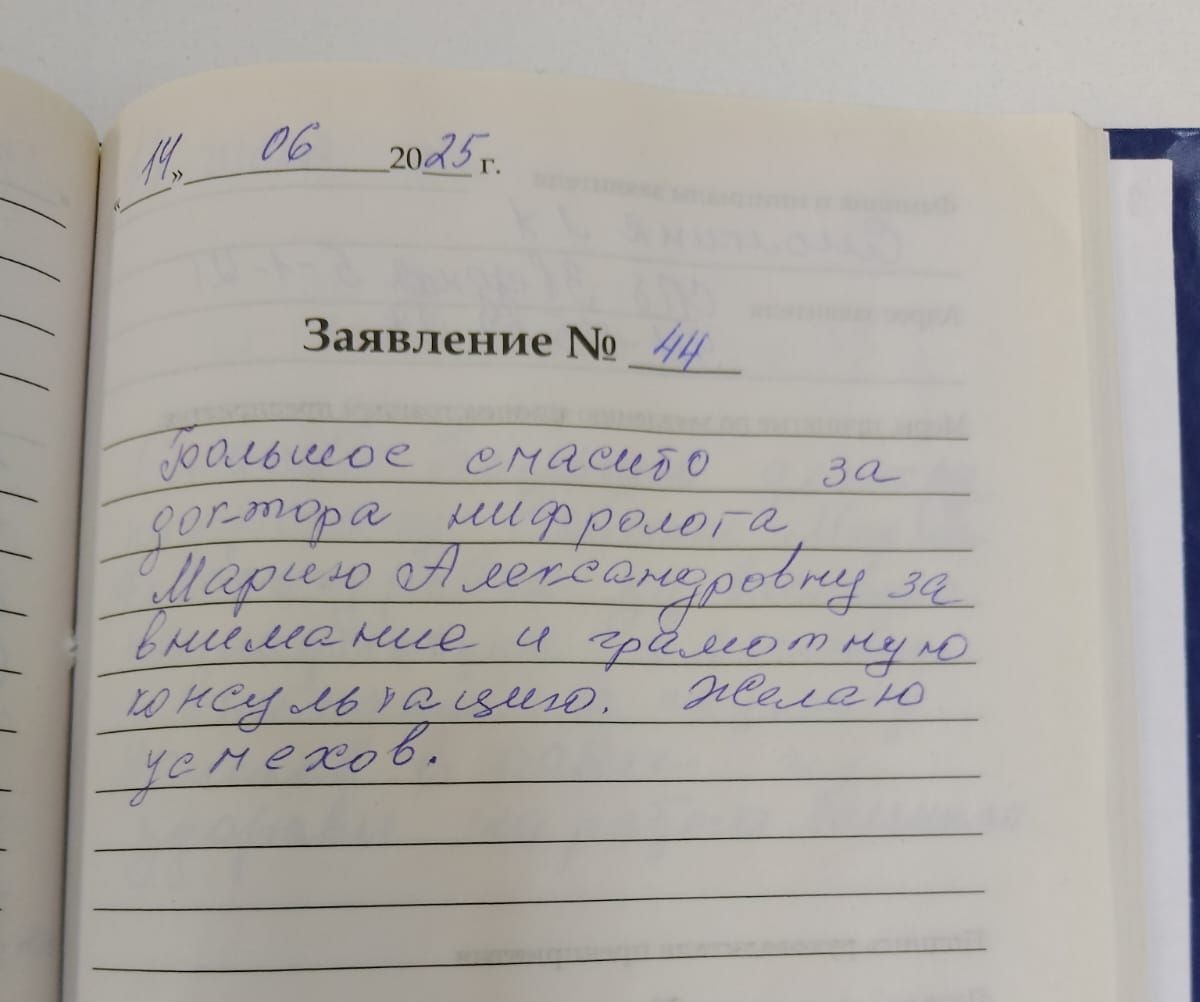 «14» 06 2025 г.
Заявление № 44
Большое спасибо за
доктора нифролога
Марию Александровну за
внимание и грамотную
консультацию. Желаю
успехов.